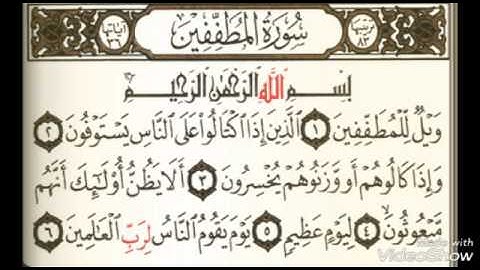 ترتيبها ٨٣ سُورَةُ الْمُطَفِّفِينَ آياتها ٣٦
بِسْمِ اللَّهِ الرَّحْمَٰنِ الرَّحِيمِ
وَيْلٌ لِّلْمُطَفِّفِينَ ١ الَّذِينَ إِذَا اكْتَالُوا عَلَى النَّاسِ يَسْتَوْفُونَ ٢
وَإِذَا كَالُوهُمْ أَو وَّزَنُوهُمْ يُخْسِرُونَ ٣ أَلَا يَظُنُّ أُولَٰئِكَ أَنَّهُم
مَّبْعُوثُونَ ٤ لِيَوْمٍ عَظِيمٍ ٥ يَوْمَ يَقُومُ النَّاسُ لِرَبِّ الْعَالَمِينَ ٦
Made with
VideoShow